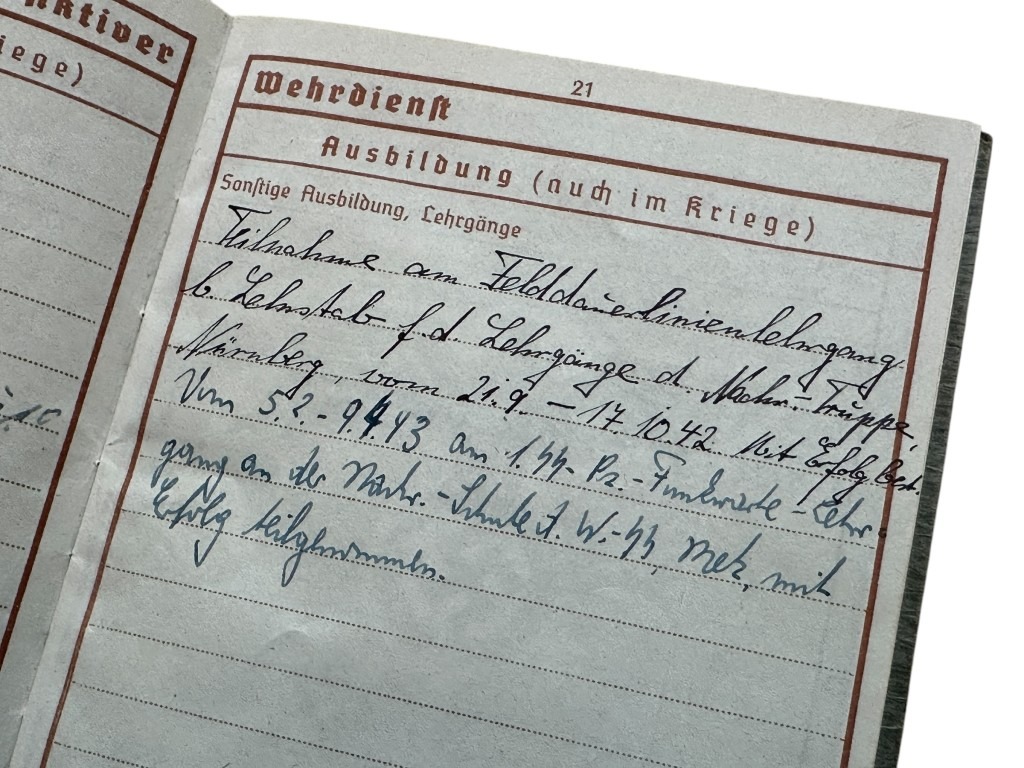 nktiver
iege)
21
Wehrdienst
Ausbildung (auch im Kriege)
Sonstige Ausbildung, Lehrgänge
Teilnahme am Felddauerlinienlehrgang
b. Lehrstab f. d. Lehrgänge d. Nachr.-Truppe,
Nürnberg, vom 21.9. – 17.10.42. Mit Erfolg best.
Vom 5.2. - 9.4.43 am 1. SS-Pz.-Funkwarte-Lehr-
gang an der Nachr.-Schule d. W.-SS, Metz, mit
Erfolg teilgenommen.